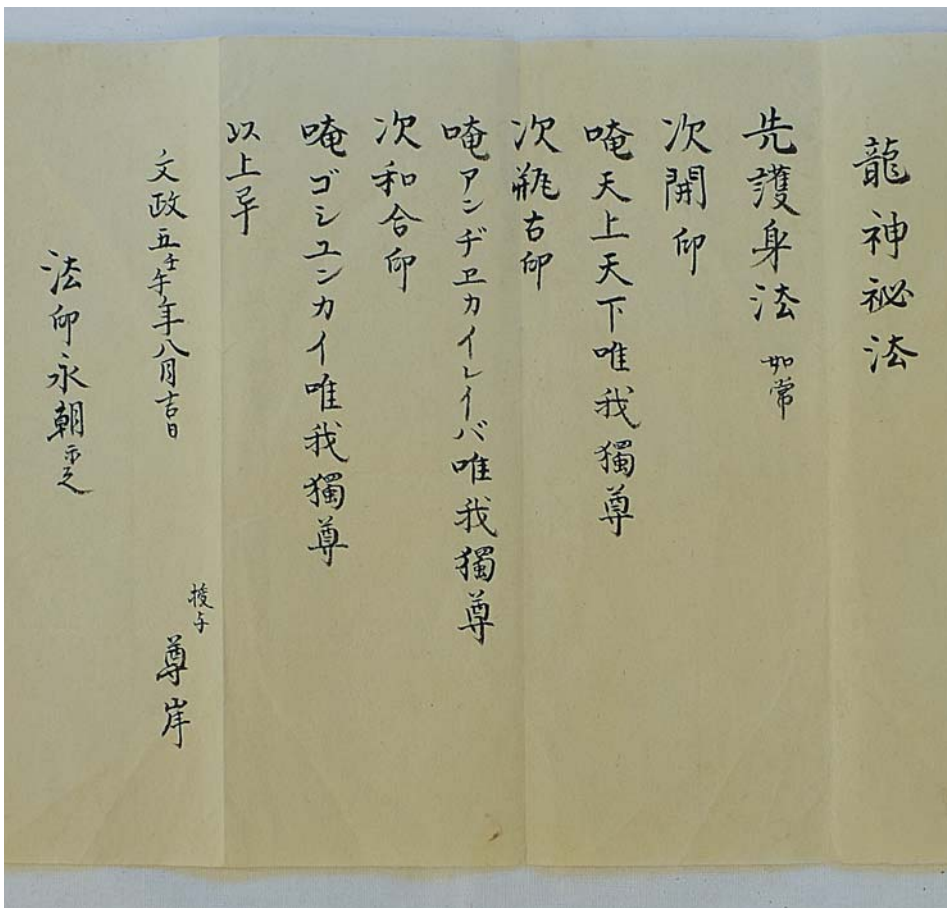 龍神祕法
先護身法 如常
次開印
唵天上天下唯我獨尊
次瓶古印
唵アンヂヱカイレイバ唯我獨尊
次和合印
唵ゴシユンカイ唯我獨尊
以上
文政五壬午年八月吉日
授与 尊岸
法印永朝示之